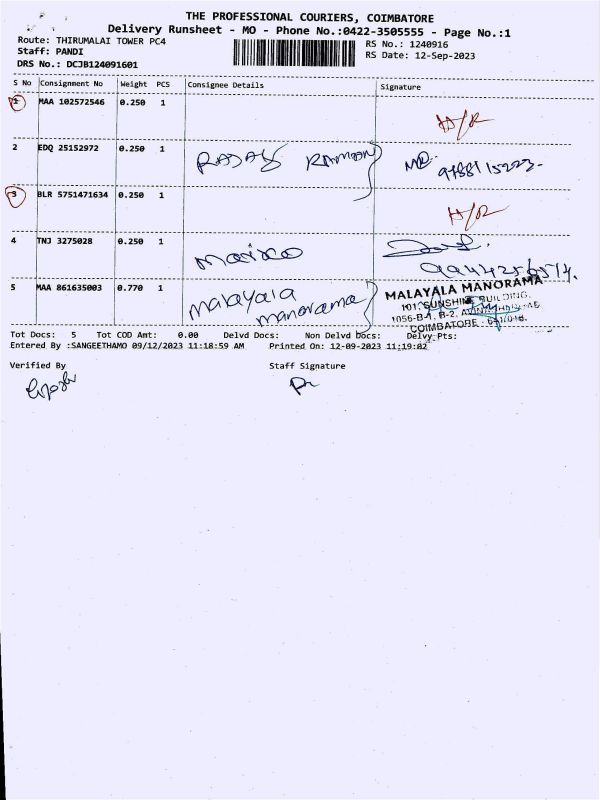 THE PROFESSIONAL COURIERS, COIMBATORE
Delivery Runsheet - MO - Phone No.:0422-3505555 - Page No.:1
Route: THIRUMALAI TOWER PC4
RS No.: 1240916
Staff: PANDI
RS Date: 12-Sep-2023
DRS No.: DCJB124091601
S No Consignment No Weight PCS Consignee Details Signature
1 MAA 102572546 0.250 1
H/R
2 EDQ 25152972 0.250 1
3 BLR 5751471634 0.250 1
H/R
4 TNJ 3275028 0.250 1 Marico
5 MAA 861635003 0.770 1 Malayala
manorama
MALAYALA MANORAMA
101, SUNSHINE BUILDING,
1056-B-1, B-2,
COIMBATORE
Tot Docs: 5 Tot COD Amt: 0.00 Delvd Docs: Non Delvd Docs: Delvy Pts:
Entered By :SANGEETHAMO 09/12/2023 11:18:59 AM Printed On: 12-09-2023 11:19:02
Verified By Staff Signature